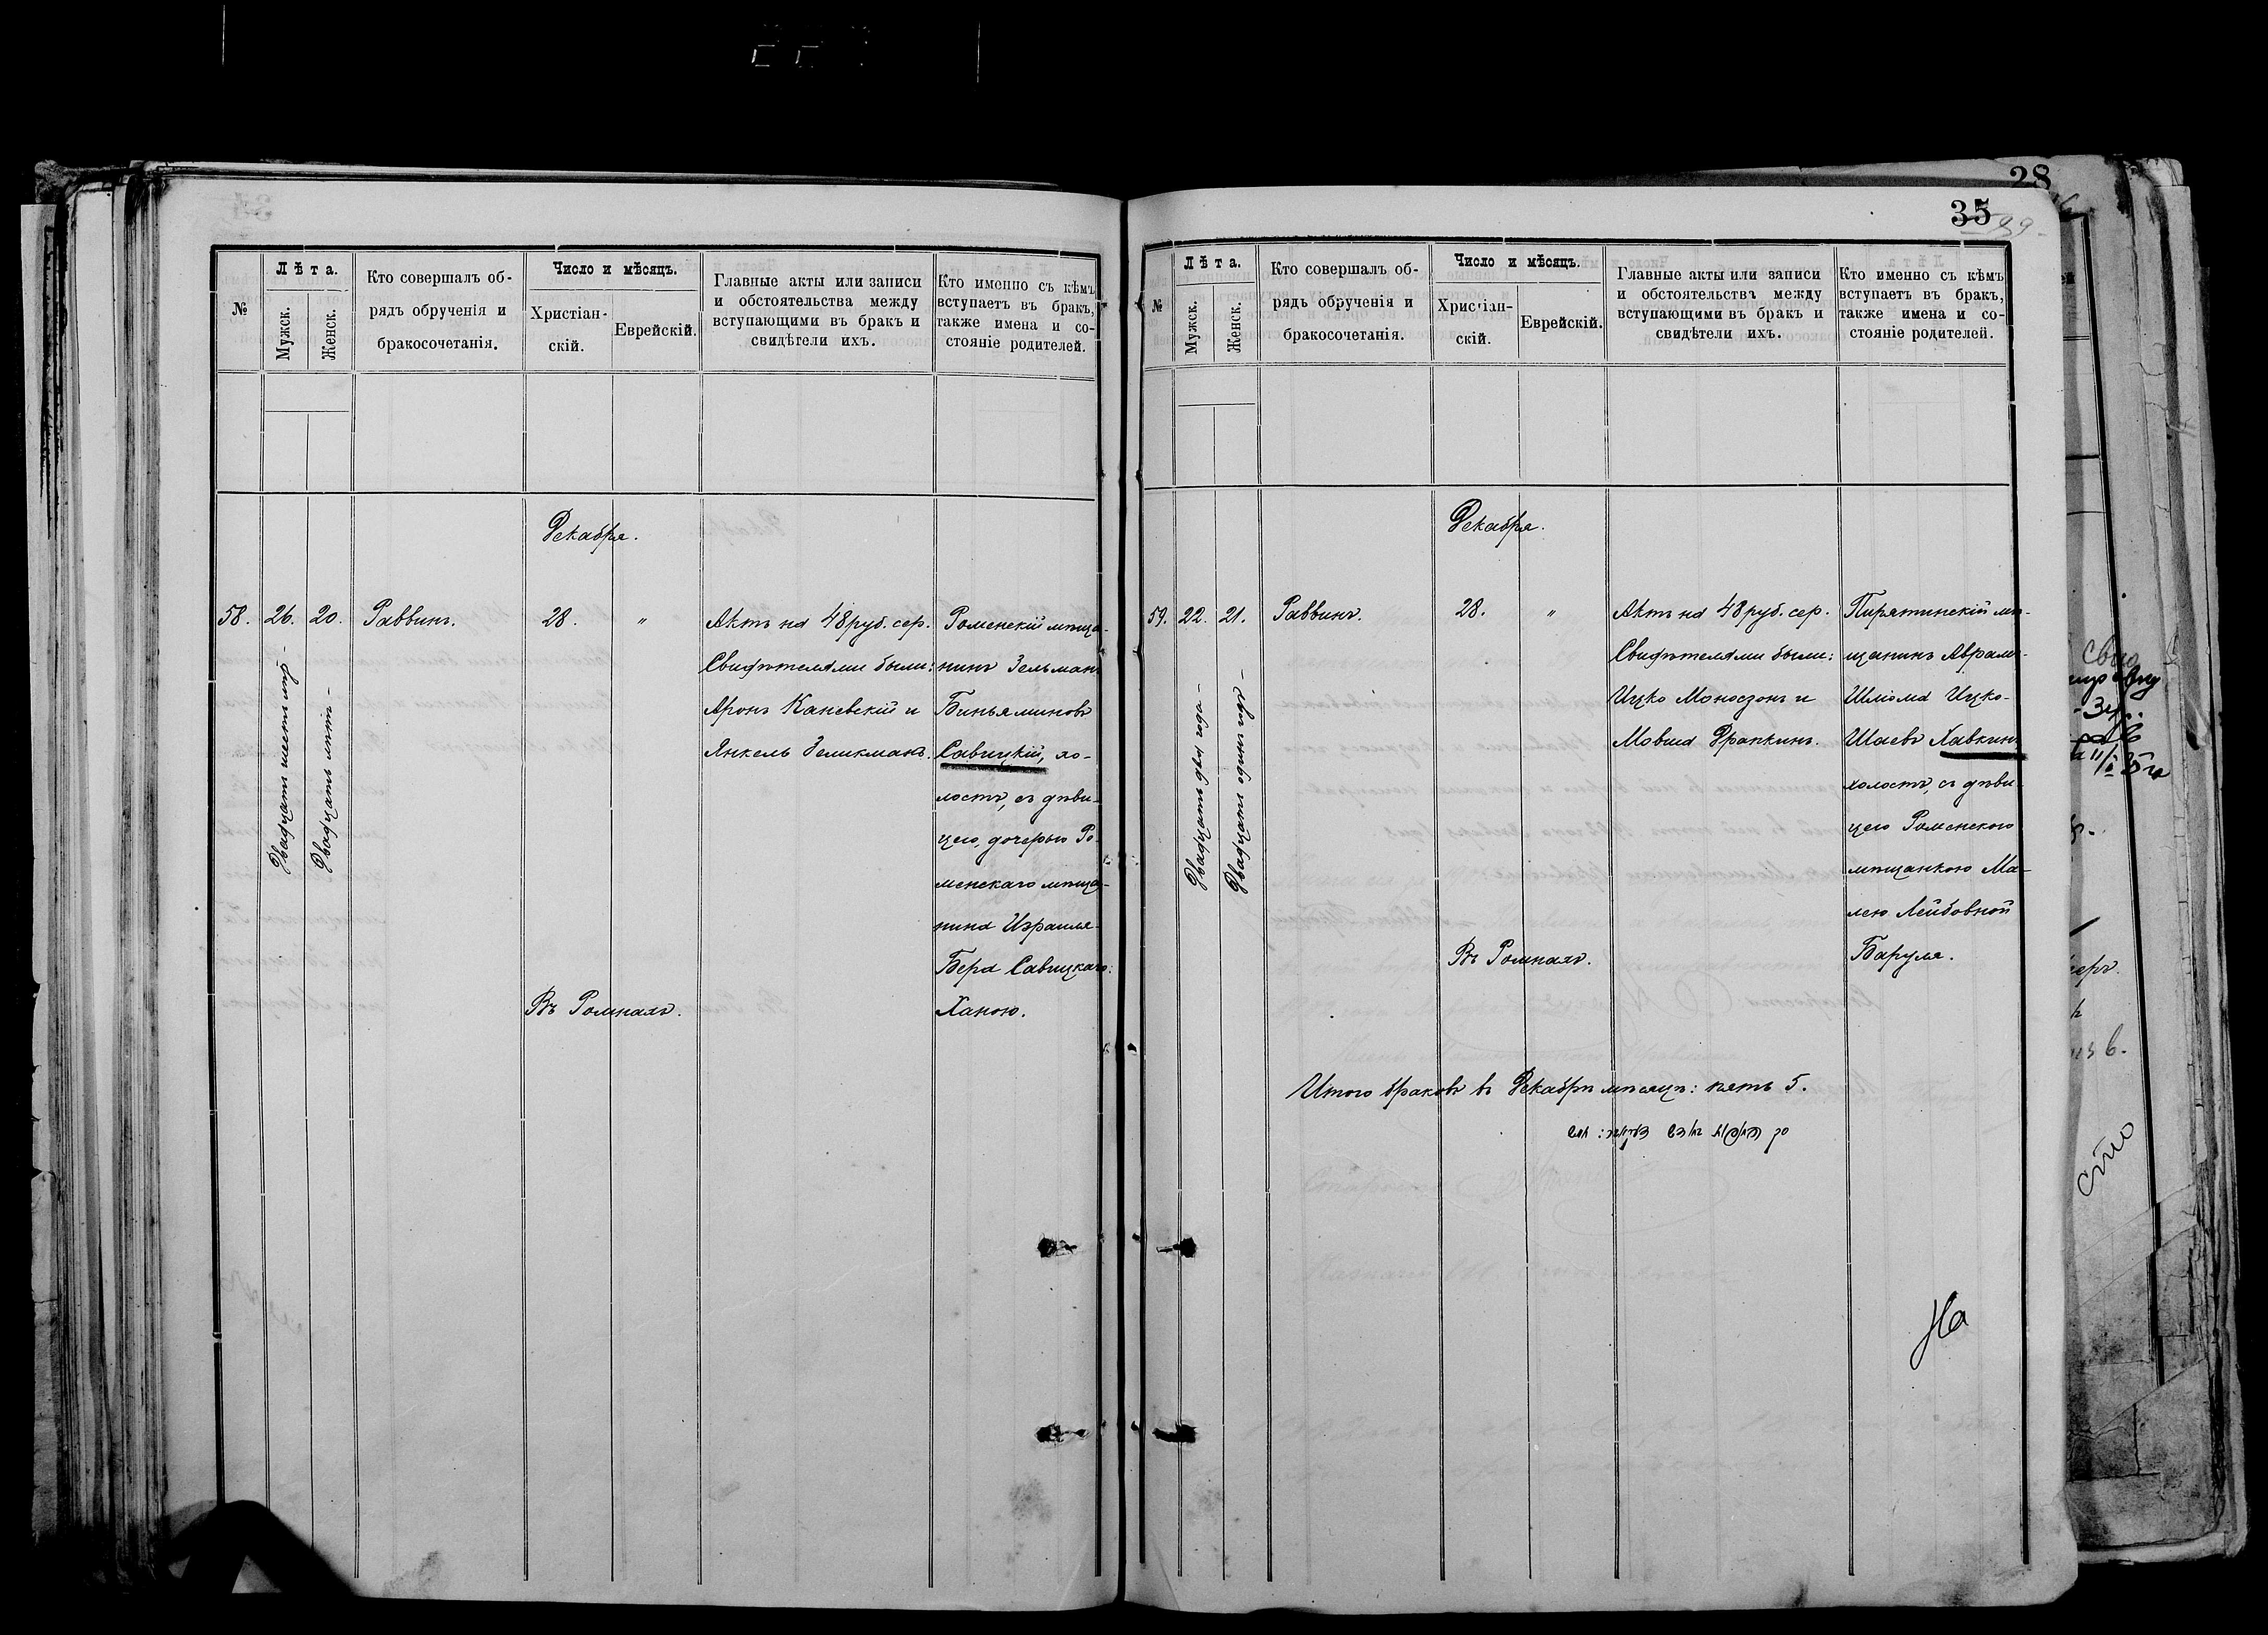 №
Лѣта.
Мужск.
Женск.
Кто совершалъ об-
рядъ обрученія и
бракосочетанія.
Число и мѣсяцъ.
Христіан-
скій.
Еврейскій.
Главные акты или записи
и обстоятельства между
вступающими въ бракъ и
свидѣтели ихъ.
Кто именно съ кѣмъ
вступаетъ въ бракъ,
также имена и со-
стояніе родителей.
Декабря.
58. 26. 20. Раввинъ. 28. "
Двадцать шесть лѣтъ -
Двадцать лѣтъ -
Актъ на 48 руб. сер.
Свидѣтелями были:
Аронъ Каневскій и
Янкель Зеликманъ.
Роменскій мѣща-
нинъ Зельманъ
Биньяминовъ
Савицкій, хо-
лостъ, съ дѣви-
цею, дочерью Ро-
менскаго мѣща-
нина Израиля-
Бера Савицкаго:
Ханою.
Въ Ромнахъ.
28
35
39-
№
Лѣта.
Мужск.
Женск.
Кто совершалъ об-
рядъ обрученія и
бракосочетанія.
Число и мѣсяцъ.
Христіан-
скій.
Еврейскій.
Главные акты или записи
и обстоятельства между
вступающими въ бракъ и
свидѣтели ихъ.
Кто именно съ кѣмъ
вступаетъ въ бракъ,
также имена и со-
стояніе родителей.
Декабря.
59. 22. 21. Раввинъ. 28. "
Двадцать два года -
Двадцать одинъ годъ -
Актъ на 48 руб. сер.
Свидѣтелями были:
Ицко Моносзонъ и
Мовша Фрапкинъ.
Пирятинскій мѣ-
щанинъ Аврамъ-
Шліома Ицко-
Шаевъ Хавкинъ
холостъ, съ дѣви-
цею Роменскою
мѣщанкою Ма-
лею Лейбовной
Баруля.
Въ Ромнахъ.
Итого браковъ въ Декабрѣ мѣсяцѣ: пять 5.
На